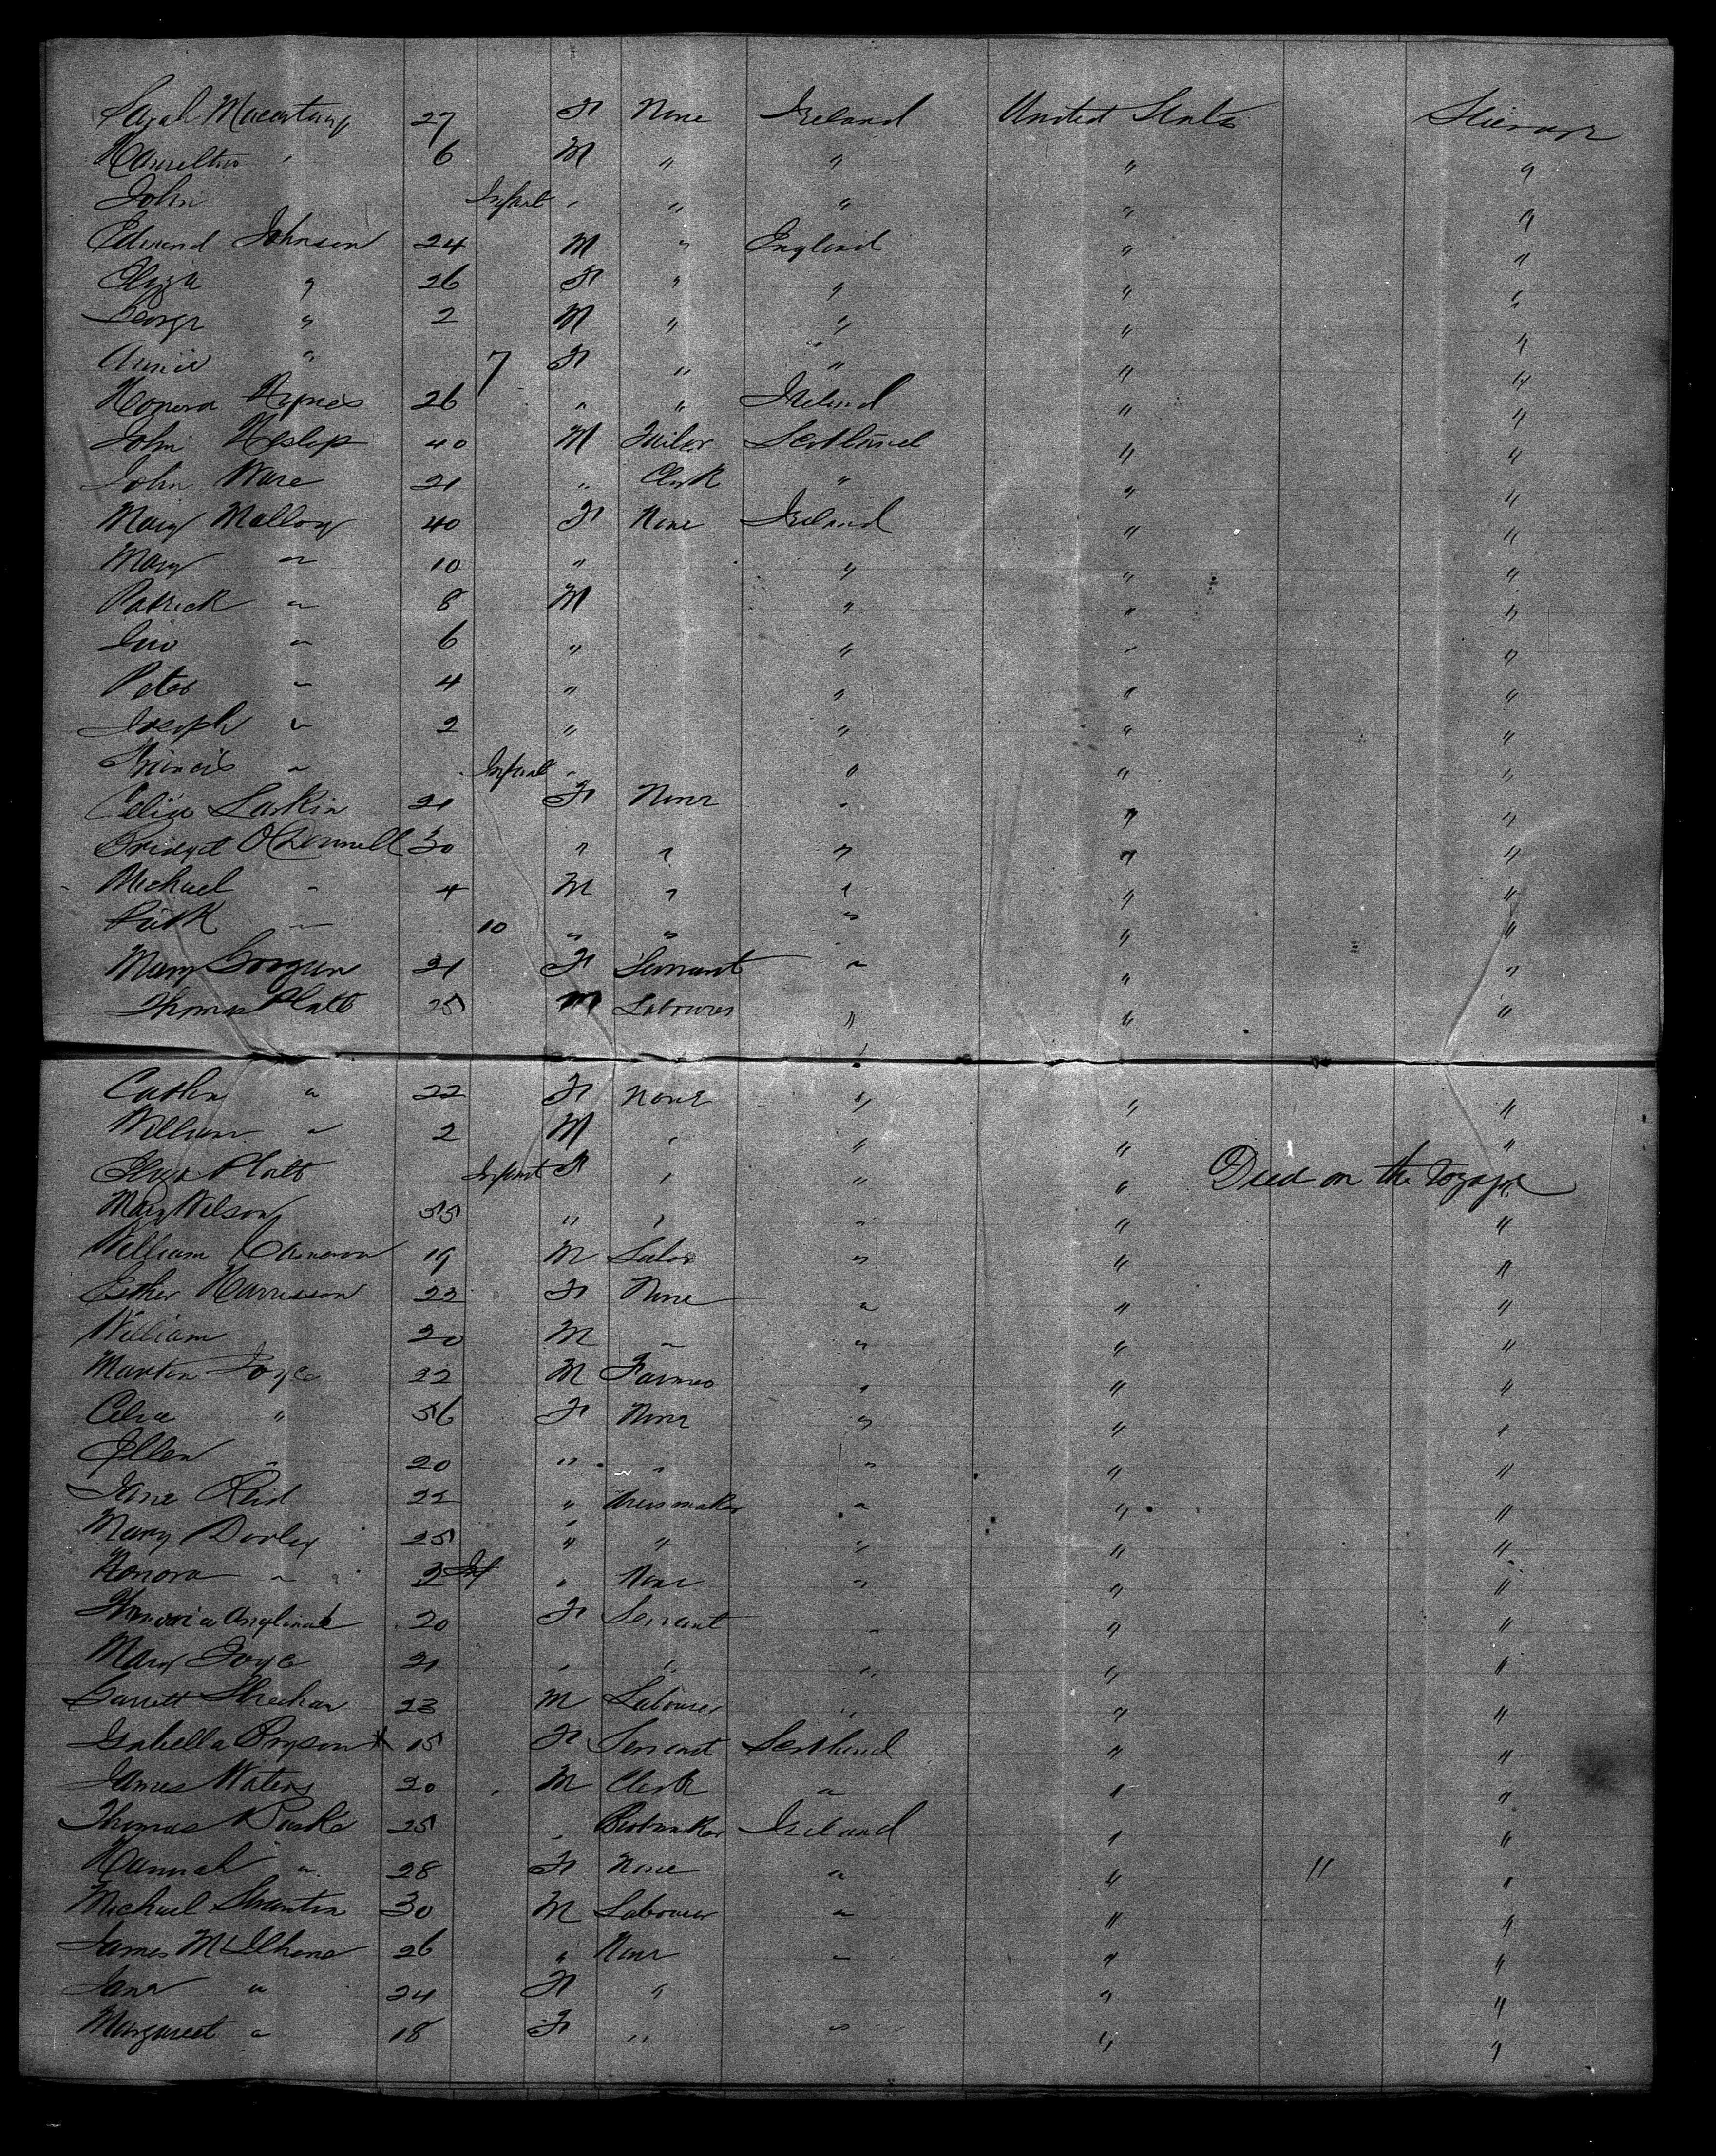 Sarah Macartney 27 F None Ireland United States Steerage
Hamilton " 6 M " " " "
John Infant " " " " "
Edward Johnson 24 M " England " "
Eliza " 26 F " " " "
George " 2 M " " " "
Annie " 7 F " " " "
Honora Hynes 26 " " Ireland " "
John Heslop 40 M Tailor Scotland " "
John Ware 21 " Clerk " " "
Mary Malloy 40 F None Ireland " "
Mary " 10 " " " "
Patrick " 8 M " " "
" 6 " " " "
Peter " 4 " " " "
Joseph " 2 " " " "
Francis " Infant " " " "
Celia Larkin 21 F None " " "
Bridget O'Donnell 30 " " " " "
Michael " 4 M " " " "
Patk " 10 " " " " "
Mary 21 F Servant " " "
Thomas Platt 25 M Labourer " " "
Cathn " 22 F None " " "
William " 2 M " " " "
Eliza Platt Infant F " " " Died on the Voyage "
Mary Wilson 55 " " " " "
William Cameron 19 M " " "
Esther Harrisson 22 F None " " "
William 20 M " " " "
Martin Joyce 22 M Farmer " " "
Celia " 56 F None " " "
Ellen " 20 " " " " "
Jane Reid 22 " Dressmaker " " "
Mary Dooley 25 " " " " "
Honora " Inf " None " " "
20 F Servant " " "
Mary Joyce 21 " " " " "
Garrett Sheehan 23 M Labourer " " "
Isabella Bryson 15 F Servant Scotland " "
James Waters 20 M Clerk " " "
Thomas Burke 25 " Bootmaker Ireland " "
Hannah " 28 F None " " " "
Michael 30 M Labourer " " "
James McIlhone 26 " None " " "
Jane " 24 F " " "
Margaret " 18 F " " " "